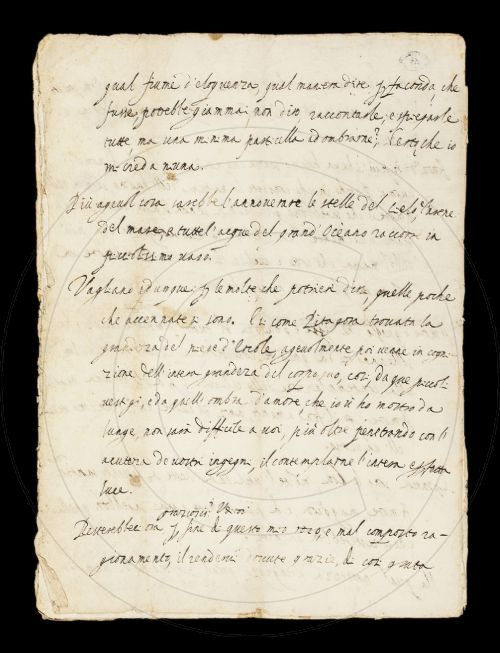 qual fiume d'eloquenza, qual maniera di dire faconda, che
fusse potrebbe giammai non dirò raccontarle, e spiegarle
tutte, ma una minima particella adombrarne? Certo che io
mi creda niuna.
Più agevol cosa sarebbe l'annoverare le stelle del Cielo, l'arene
del mare, e tutte l'acque del grand'Oceano raccorre in
piccolissimo vaso.
Vagliano dunque le molte che potrieri dire, quelle poche
che accennate sono. E come Pitagora trovata la
grandezza del piede d'Ercole, agevolmente poi venne in cogni-
zione dell'intera grandezza del corpo suo, così da que piccoli
vestigi, e da quell'ombra d'amore, che io vi ho mostro da
lunge, non sarà difficile a voi, più oltre penetrando con l'
acutezza de vostri ingegni, il contemplarne l'intera e perfetta
luce.
Resterebbe ora fine di questo mio rozo, e mal composto ra-
gionamento, il rendervi grazie, di così grata